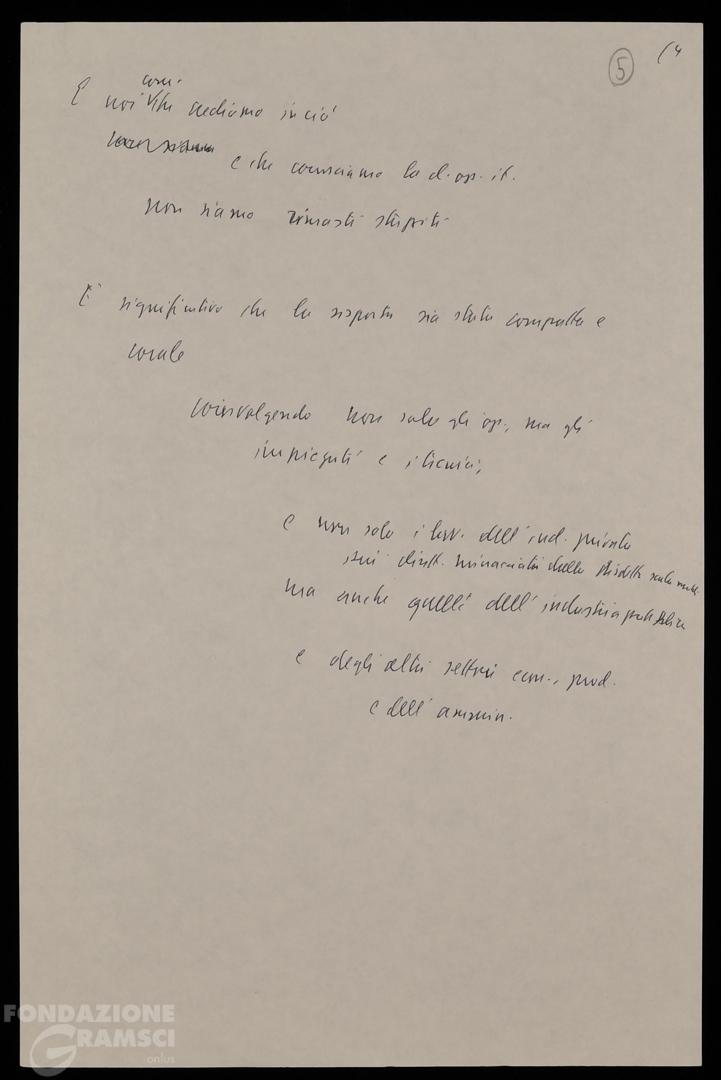 5
(4
E noi che crediamo in ciò
così
e che conosciamo la cl. op. it.
non siamo rimasti stupiti
E' significativo che la risposta sia stata compatta e
corale
coinvolgendo non solo gli op., ma gli
impiegati e i tecnici,
e non solo i lav. dell'ind. privata
dirett. minacciati dalla disdetta scala mob.
ma anche quelli dell'industria pubblica
e degli altri settori econ., prod.
e dell'ammin.
FONDAZIONE
GRAMSCI
onlus